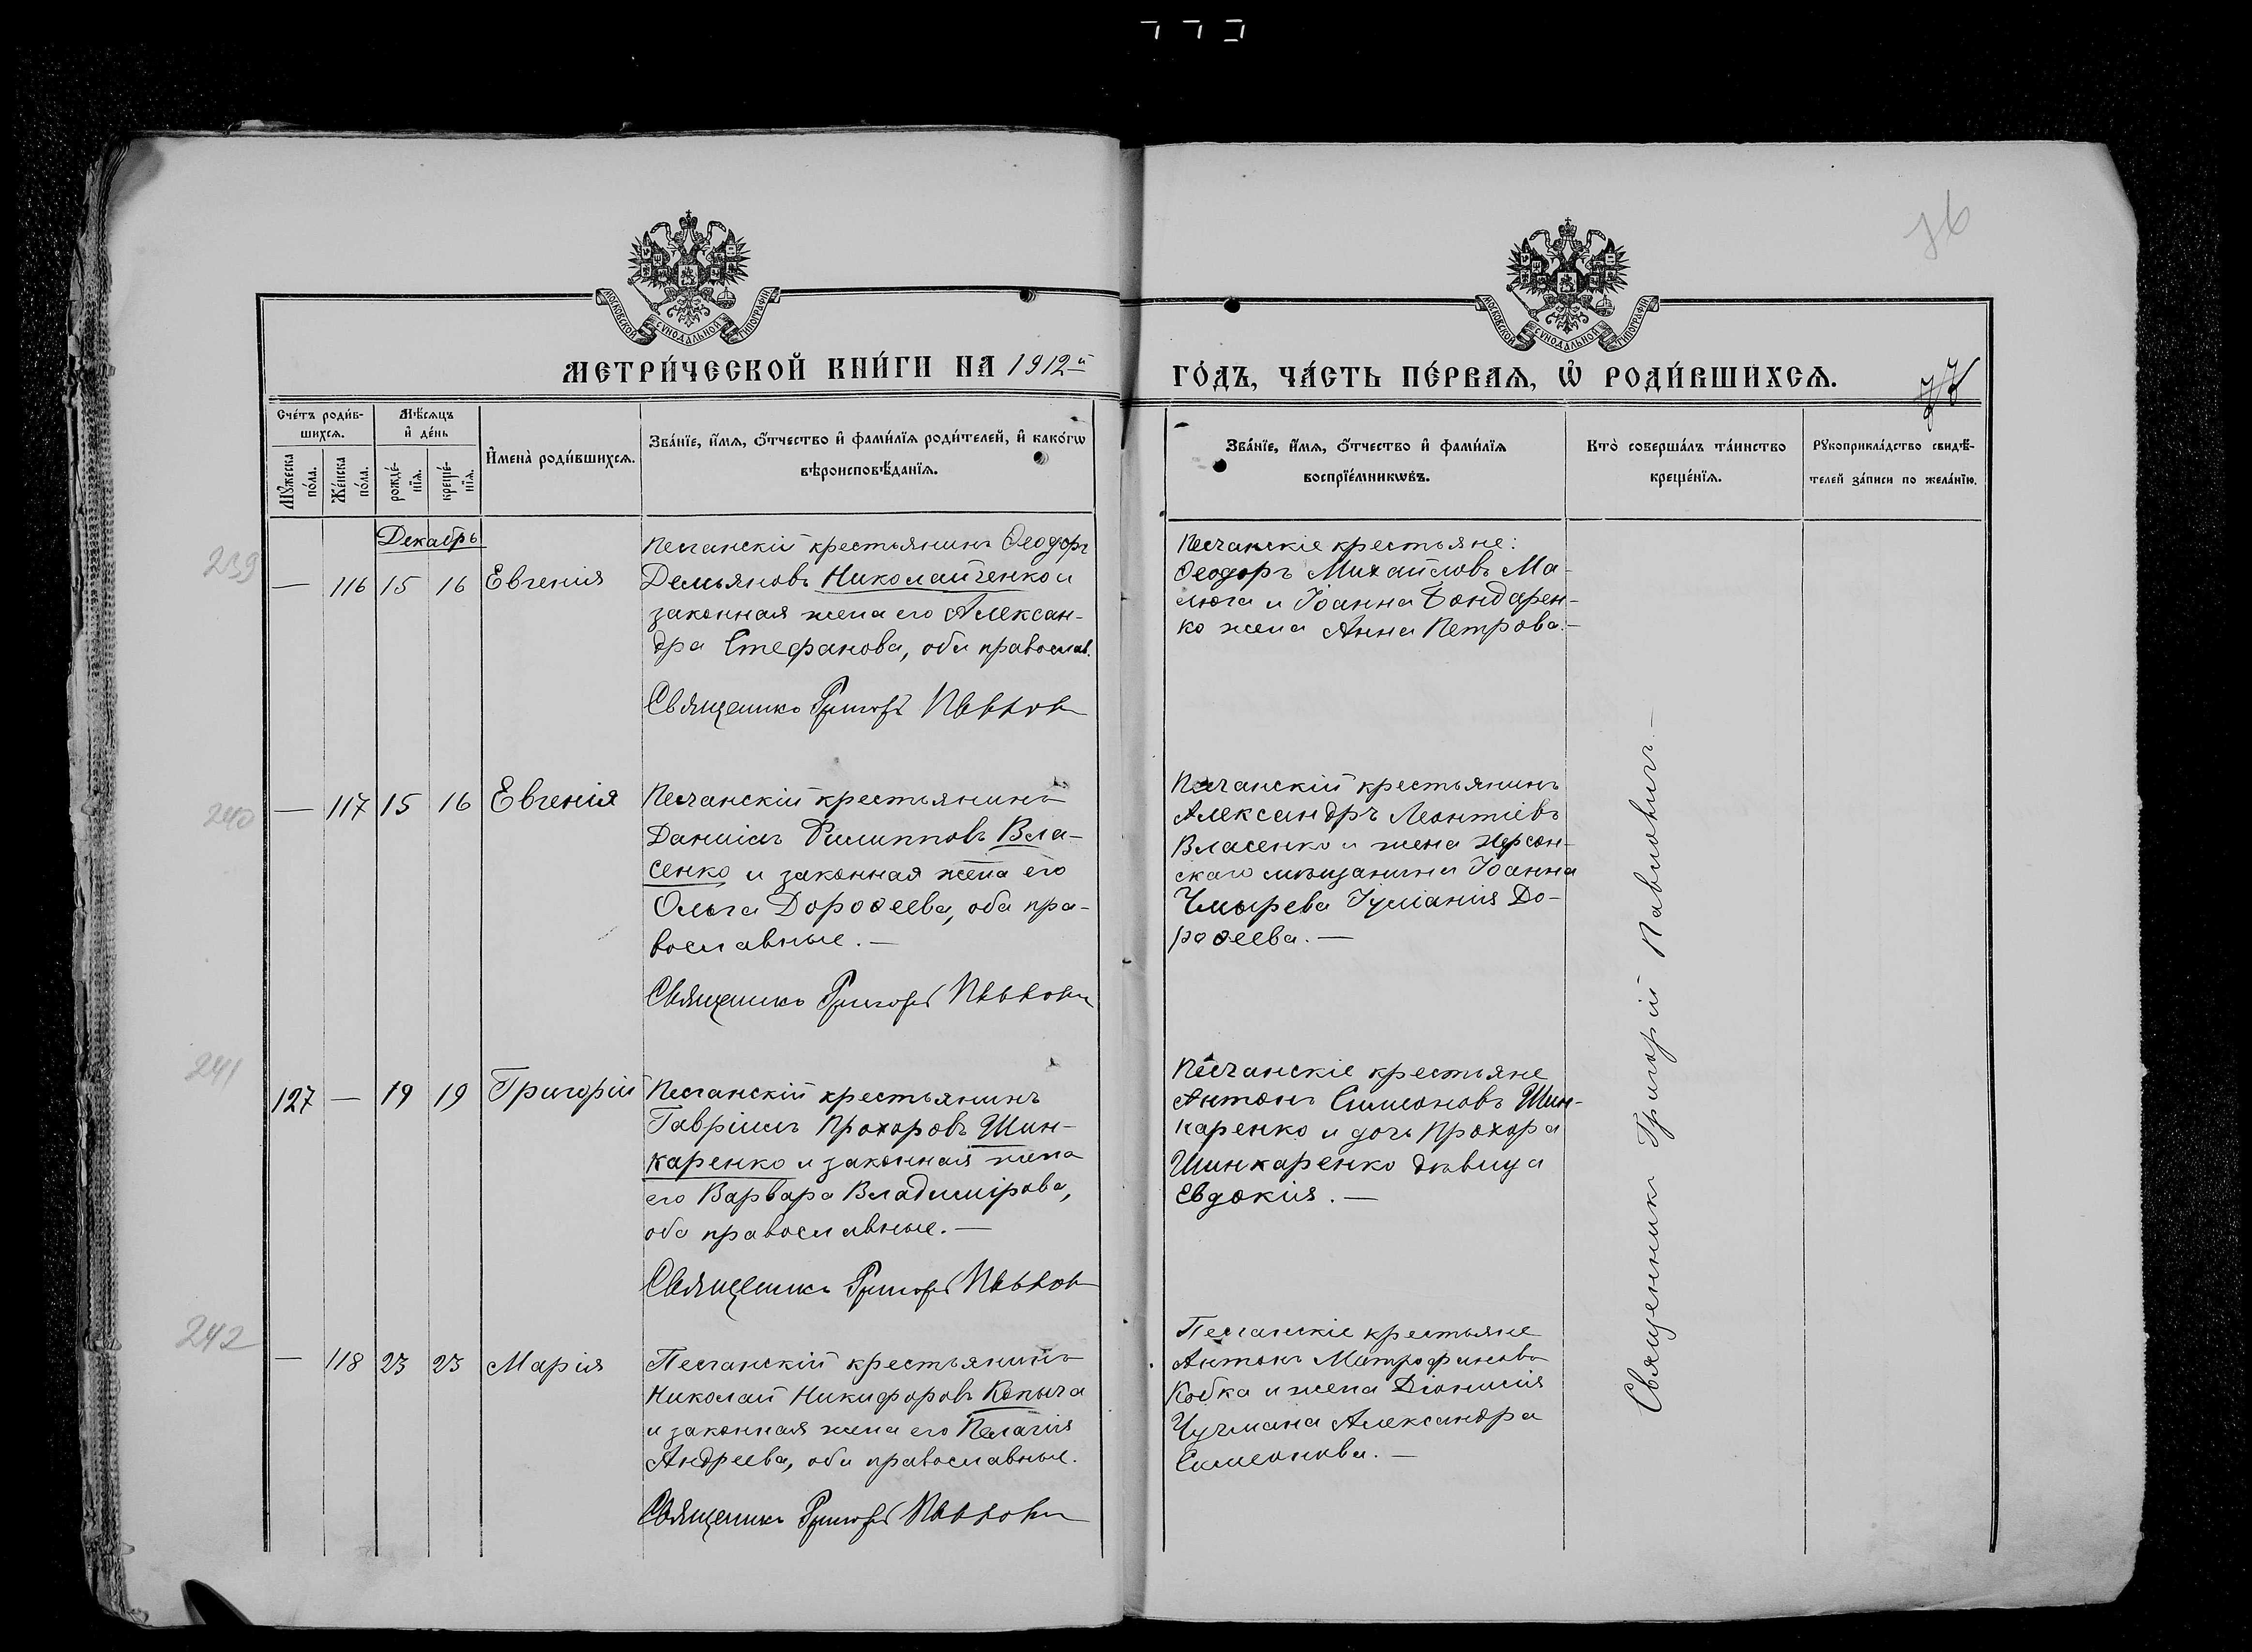 76
МОСКОВСКОЙ СѴНОДАЛЬНОЙ ТИПОГРАФІИ
МОСКОВСКОЙ СѴНОДАЛЬНОЙ ТИПОГРАФІИ
МЕТРИ́ЧЕСКОЙ КНИ́ГИ НА 1912й
ГО́ДЪ, ЧА́СТЬ ПЕ́РВАѦ, Ѡ҆ РОДИ́ВШИХСѦ.
77
Сче́тъ роди́в-
шихсѧ.
Мѣ́сѧцъ
и҆ де́нь
Мꙋ́жеска
по́ла.
Же́нска
по́ла.
рожде́-
нїѧ.
креще́-
нїѧ.
И҆мена̀ роди́вшихсѧ.
Зва́нїе, и҆́мѧ, ѻ҆́тчество и҆ фами́лїѧ роди́телей, и҆ како́гѡ
вѣроисповѣ́данїѧ.
Зва́нїе, и҆́мѧ, ѻ҆́тчество и҆ фами́лїѧ
воспрїе́мникѡвъ.
Кто̀ соверша́лъ та́инство
креще́нїѧ.
Рꙋкоприкла́дство свидѣ́-
телей за́писи по жела́нїю.
Декабрь
239
— 116 15 16 Евгенія
Песчанскій крестьянинъ Ѳеодоръ
Демьяновъ Николайченко и
законная жена его Алексан-
дра Стефанова, оба православ.
Священникъ Григорій Павлович
Песчанскіе крестьяне:
Ѳеодоръ Михайловъ Ма-
люга и Іоанна Бондарен-
ко жена Анна Петрова.—
240
— 117 15 16 Евгенія
Песчанскій крестьянинъ
Даніилъ Филипповъ Вла-
сенко и законная жена его
Ольга Дороѳеева, оба пра-
вославные.—
Священникъ Григорій Павлович
Песчанскій крестьянинъ
Александръ Леонтіевъ
Власенко и жена Херсон-
скаго мѣщанина Іоанна
Чмырева Іуліанія До-
роѳеева.—
241
127 — 19 19 Григорій
Песчанскій крестьянинъ
Гавріилъ Прохоровъ Шин-
каренко и законная жена
его Варвара Владимірова,
оба православные.—
Священникъ Григорій Павлович
Песчанскіе крестьяне
Антонъ Симеоновъ Шин-
каренко и дочь Прохора
Шинкаренко дѣвица
Евдокія.—
242
— 118 23 23 Марія
Песчанскій крестьянинъ
Николай Никифоровъ Копыча
и законная жена его Пелагія
Андреева, оба православные.
Священникъ Григорій Павлович
Песчанскіе крестьяне
Антонъ Митрофановъ
Кобка и жена Діонисія
Чучмана Александра
Симеонова.—
Священникъ Григорій Павловичъ—